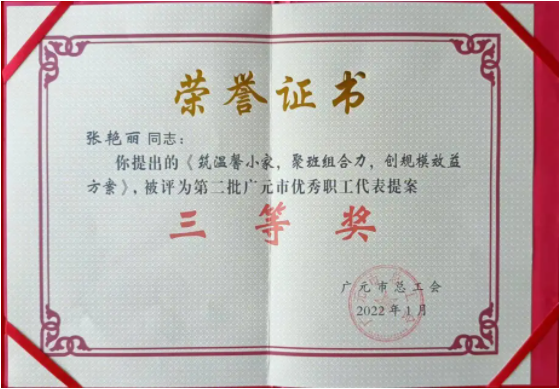 荣誉证书
张艳丽 同志：
你提出的《筑温馨小家，聚班组合力，创规模效益
方案》，被评为第二批广元市优秀职工代表提案
三等奖
广元市总工会
2022年1月
广元市总工会